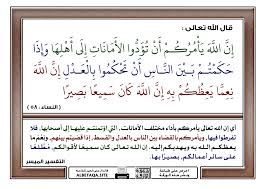 قال الله تعالى :
إِنَّ اللَّهَ يَأْمُرُكُمْ أَنْ تُؤَدُّوا الْأَمَانَاتِ إِلَى أَهْلِهَا وَإِذَا
حَكَمْتُمْ بَيْنَ النَّاسِ أَنْ تَحْكُمُوا بِالْعَدْلِ إِنَّ اللَّهَ
نِعِمَّا يَعِظُكُمْ بِهِ إِنَّ اللَّهَ كَانَ سَمِيعًا بَصِيرًا
(النساء: ٥٨)
أي إن الله تعالى يأمركم بأداء مختلف الأمانات، التي اؤتمنتم عليها إلى أصحابها، فلا
تفرطوا فيها، ويأمركم بالقضاء بين الناس بالعدل والقسط، إذا قضيتم بينهم، ونعم ما
يعظكم الله به ويهديكم إليه. إن الله تعالى كان سميعًا لأقوالكم، مُطَّلعًا
على سائر أعمالكم، بصيرًا بها.
التفسير الميسر
ALBETAQA.SITE